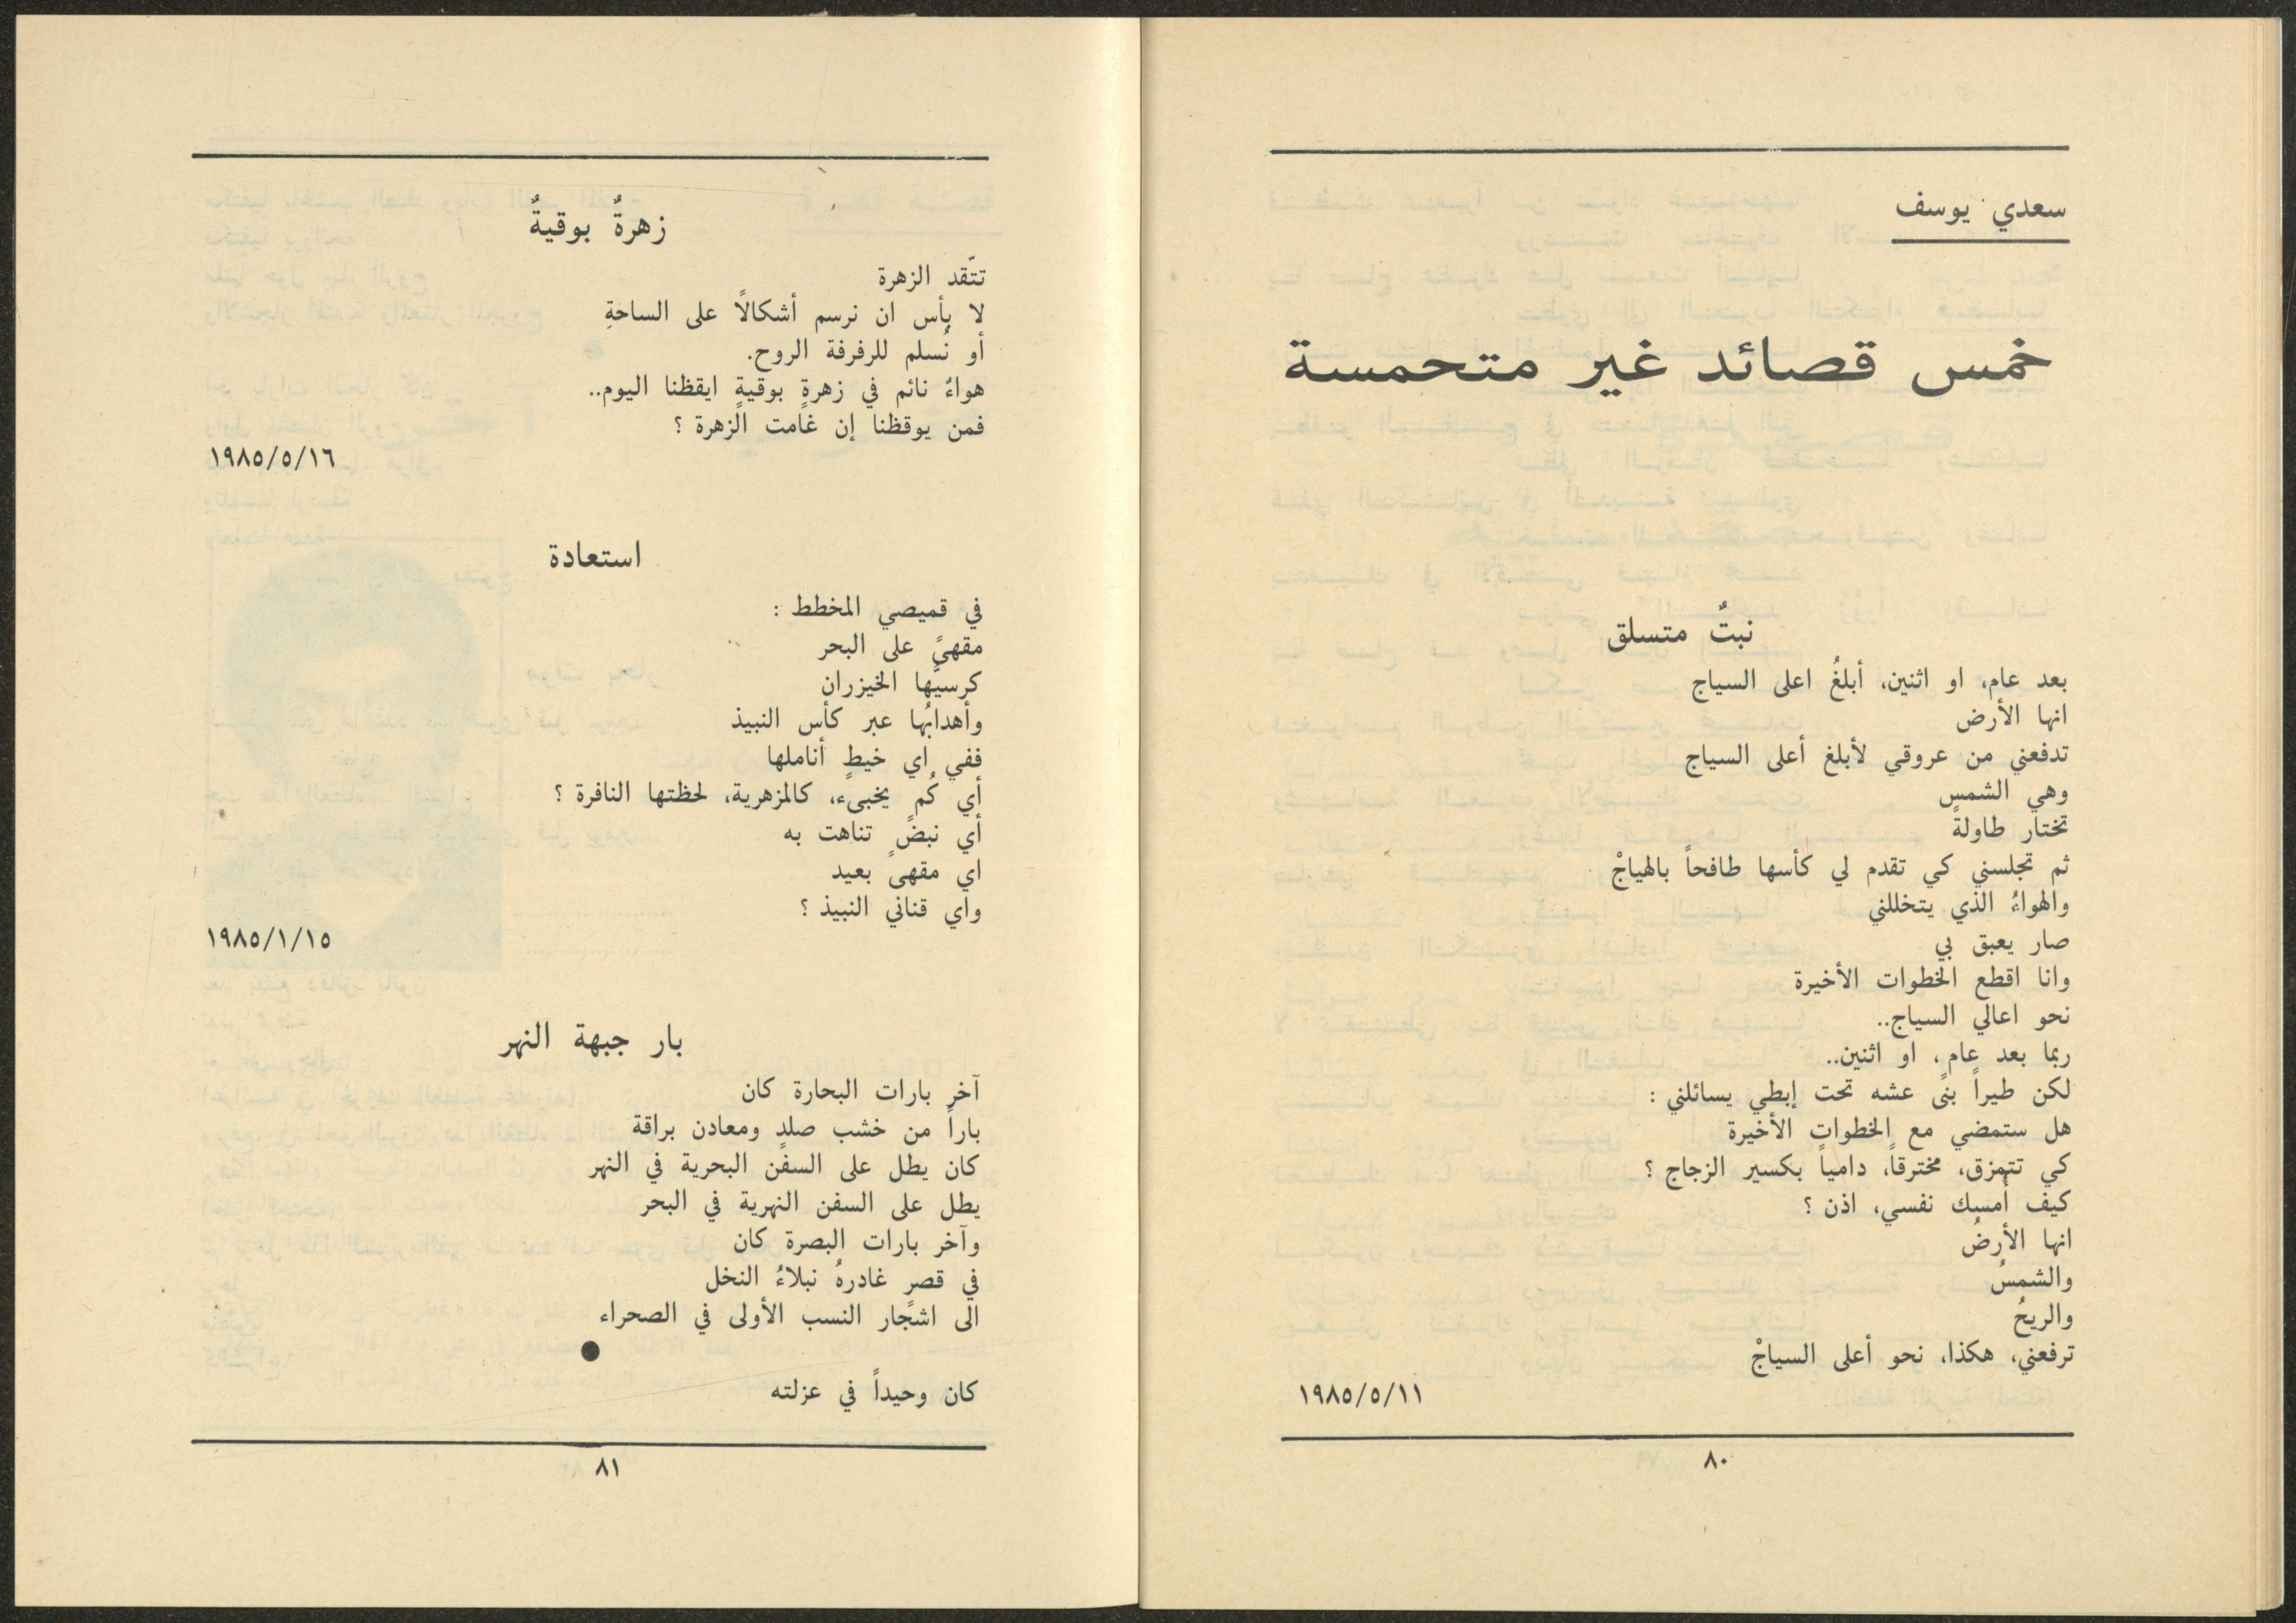 سعدي يوسف
خمس قصائد غير متحمسة
نبتٌ متسلق
بعد عام، او اثنين، أبلغُ اعلى السياج
انها الأرض
تدفعني من عروقي لأبلغ أعلى السياج
وهي الشمس
تختار طاولةً
ثم تجلسني كي تقدم لي كأسها طافحاً بالهياجْ
والهواءُ الذي يتخللني
صار يعبق بي
وانا اقطع الخطوات الأخيرة
نحو اعالي السياج..
ربما بعد عام، او اثنين..
لكن طيراً بنى عشه تحت إبطي يسائلني :
هل ستمضي مع الخطوات الأخيرة
كي تتمزق، مخترقاً، دامياً بكسير الزجاج ؟
كيف أُمسك نفسي، اذن ؟
انها الأرضُ
والشمسُ
والريحُ
ترفعني، هكذا، نحو أعلى السياجْ
١٩٨٥/٥/١١
٨٠
زهرةٌ بوقيةٌ
تتّقد الزهرة
لا بأس ان نرسم أشكالاً على الساحةِ
أو نُسلم للرفرفة الروح.
هواءٌ نائم في زهرةٍ بوقيةٍ ايقظنا اليوم..
فمن يوقظنا إن غامت الزهرة ؟
١٩٨٥/٥/١٦
استعادة
في قميصي المخطط :
مقهىً على البحر
كرسيُّها الخيزران
وأهدابُها عبر كأس النبيذ
ففي اي خيطٍ أناملها
أي كُم يخبىء، كالمزهرية، لحظتها النافرة ؟
أي نبضٍ تناهت به
اي مقهىً بعيد
واي قناني النبيذ ؟
١٩٨٥/١/١٥
بار جبهة النهر
آخر بارات البحارة كان
باراً من خشب صلدٍ ومعادن براقة
كان يطل على السفن البحرية في النهر
يطل على السفن النهرية في البحر
وآخر بارات البصرة كان
في قصرٍ غادرهُ نبلاءُ النخل
الى اشجار النسب الأولى في الصحراء
●
كان وحيداً في عزلته
٨١